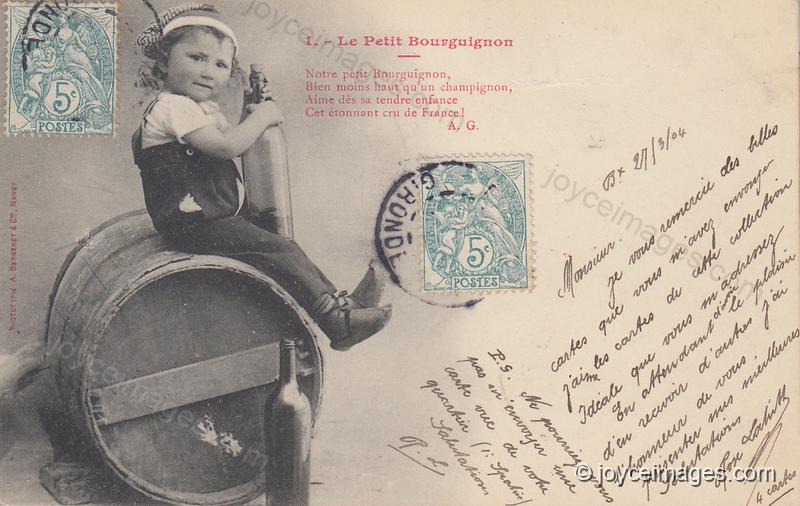 1. - Le Petit Bourguignon
Notre petit Bourguignon,
Bien moins haut qu'un champignon,
Aime dès sa tendre enfance
Cet étonnant cru de France!
A. G.
5c
POSTES
5c
POSTES
GIRONDE
GIRONDE
PHOTOTYPIE A. BERGERET & Cie, NANCY
Bx 27/3/04
Monsieur.
je vous remercie des belles
cartes que vous m'avez envoyer
j'aime les cartes de cette collection
Idéale que vous m'adressez
En attendant d'avoir le plaisir
d'en recevoir d'autres j'ai
l'honneur de vous
présenter mes meilleures
Salutations
Rose Lahitte
4 cartes
P.S. Ne pourriez vous
pas m'envoyer une
carte vue de votre
quartier
Salutations
R. L.
joyceimages.com
joyceimages.com
joyceimages.com
joyceimages.com
© joyceimages.com